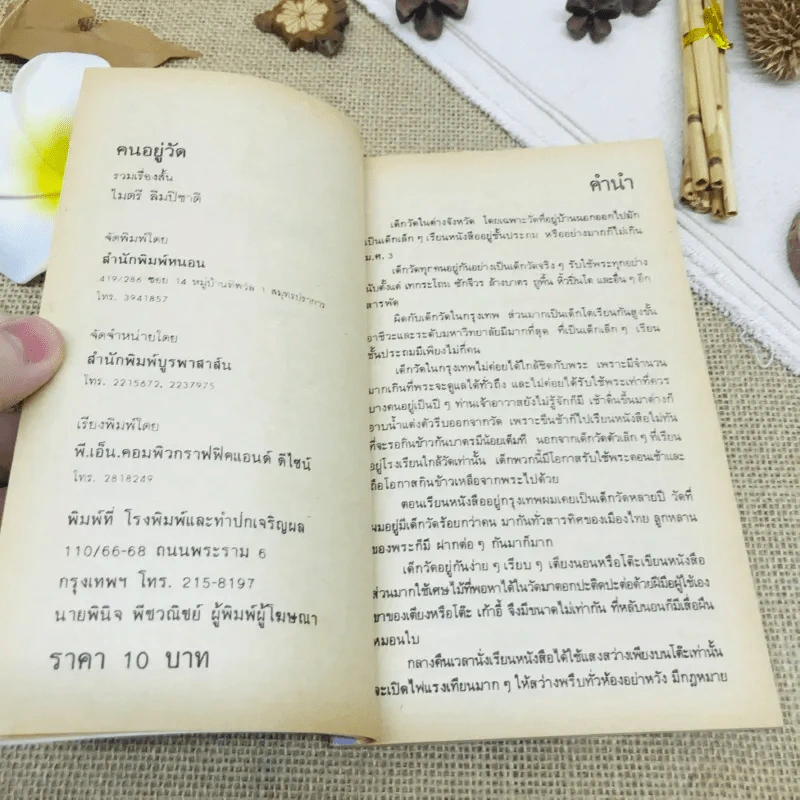 คนอยู่วัด
รวมเรื่องสั้น
ไมตรี ลิมปิชาติ
จัดพิมพ์โดย
สำนักพิมพ์หนอน
419/286 ซอย 14 หมู่บ้านทิพวัล 1 สมุทรปราการ
โทร. 3941857
จัดจำหน่ายโดย
สำนักพิมพ์บูรพาสาส์น
โทร. 2215672, 2237975
เรียงพิมพ์โดย
พี.เอ็น.คอมพิวกราฟฟิคแอนด์ ดีไซน์
โทร. 2818249
พิมพ์ที่ โรงพิมพ์และทำปกเจริญผล
110/66-68 ถนนพระราม 6
กรุงเทพฯ โทร. 215-8197
นายพินิจ พืชวณิชย์ ผู้พิมพ์ผู้โฆษณา
ราคา 10 บาท
คำนำ
เด็กวัดในต่างจังหวัด โดยเฉพาะวัดที่อยู่บ้านนอกออกไปมัก
เป็นเด็กเล็ก ๆ เรียนหนังสืออยู่ชั้นประถม หรืออย่างมากก็ไม่เกิน
ม.ศ. 3
เด็กวัดทุกคนอยู่กันอย่างเป็นเด็กวัดจริง ๆ รับใช้พระทุกอย่าง
นับตั้งแต่ เทกระโถน ซักจีวร ล้างบาตร ถูพื้น หิ้วปิ่นโต และอื่น ๆ อีก
สารพัด
ผิดกับเด็กวัดในกรุงเทพ ส่วนมากเป็นเด็กโตเรียนกันสูงขึ้น
อาชีวะและระดับมหาวิทยาลัยมีมากที่สุด ที่เป็นเด็กเล็ก ๆ เรียน
ชั้นประถมมีเพียงไม่กี่คน
เด็กวัดในกรุงเทพไม่ค่อยได้ใกล้ชิดกับพระ เพราะมีจำนวน
มากเกินที่พระจะดูแลได้ทั่วถึง และไม่ค่อยได้รับใช้พระเท่าที่ควร
บางคนอยู่เป็นปี ๆ ท่านเจ้าอาวาสยังไม่รู้จักก็มี เช้าตื่นขึ้นมาต่างก็
อาบน้ำแต่งตัวรีบออกจากวัด เพราะขืนช้าก็ไปเรียนหนังสือไม่ทัน
ที่จะรอกินข้าวก้นบาตรมีน้อยเต็มที นอกจากเด็กวัดตัวเล็ก ๆ ที่เรียน
อยู่โรงเรียนใกล้วัดเท่านั้น เด็กพวกนี้มีโอกาสรับใช้พระตอนเช้าและ
ถือโอกาสกินข้าวเหลือจากพระไปด้วย
ตอนเรียนหนังสืออยู่กรุงเทพผมเคยเป็นเด็กวัดหลายปี วัดที่
ผมอยู่มีเด็กวัดร้อยกว่าคน มากันทั่วสารทิศของเมืองไทย ลูกหลาน
ของพระก็มี ฝากต่อ ๆ กันมาก็มาก
เด็กวัดอยู่กันง่าย ๆ เรียบ ๆ เตียงนอนหรือโต๊ะเขียนหนังสือ
ส่วนมากใช้เศษไม้ที่พอหาได้ในวัดมาตอกปะติดปะต่อด้วยฝีมือผู้ใช้เอง
ขาของเตียงหรือโต๊ะ เก้าอี้ จึงมีขนาดไม่เท่ากัน ที่หลับนอนก็มีเสื่อผืน
หมอนใบ
กลางคืนเวลานั่งเรียนหนังสือได้ใช้แสงสว่างเพียงบนโต๊ะเท่านั้น
จะเปิดไฟแรงเทียนมาก ๆ ให้สว่างพรึบทั่วห้องอย่าหวัง มีกฎหมาย